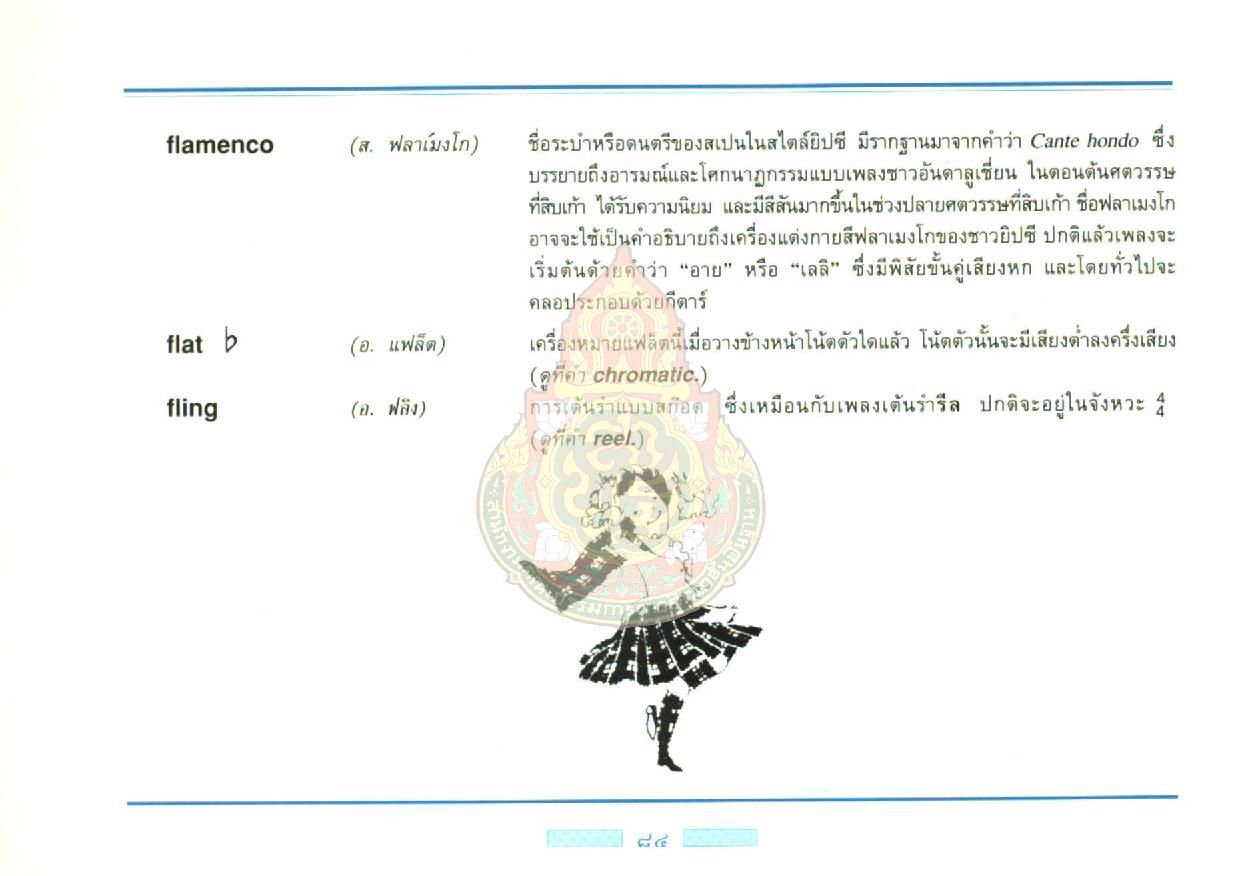 flamenco (ส. ฟลาเมงโก) ชื่อระบำหรือดนตรีของสเปนในสไตล์ยิปซี มีรากฐานมาจากคำว่า Cante hondo ซึ่ง
บรรยายถึงอารมณ์และโศกนาฏกรรมแบบเพลงชาวอันดาลูเซี่ยน ในตอนต้นศตวรรษ
ที่สิบเก้า ได้รับความนิยม และมีสีสันมากขึ้นในช่วงปลายศตวรรษที่สิบเก้า ชื่อฟลาเมงโก
อาจจะใช้เป็นคำอธิบายถึงเครื่องแต่งกายสีฟลาเมงโกของชาวยิปซี ปกติแล้วเพลงจะ
เริ่มต้นด้วยคำว่า “อาย” หรือ “เลลิ” ซึ่งมีพิสัยขั้นคู่เสียงหก และโดยทั่วไปจะ
คลอประกอบด้วยกีตาร์
flat ♭ (อ. แฟล็ต) เครื่องหมายแฟล็ตนี้เมื่อวางข้างหน้าโน้ตตัวใดแล้ว โน้ตตัวนั้นจะมีเสียงต่ำลงครึ่งเสียง
(ดูที่คำ chromatic.)
fling (อ. ฟลิง) การเต้นรำแบบสก๊อต ซึ่งเหมือนกับเพลงเต้นรำรีล ปกติจะอยู่ในจังหวะ 4/4
(ดูที่คำ reel.)
๘๔